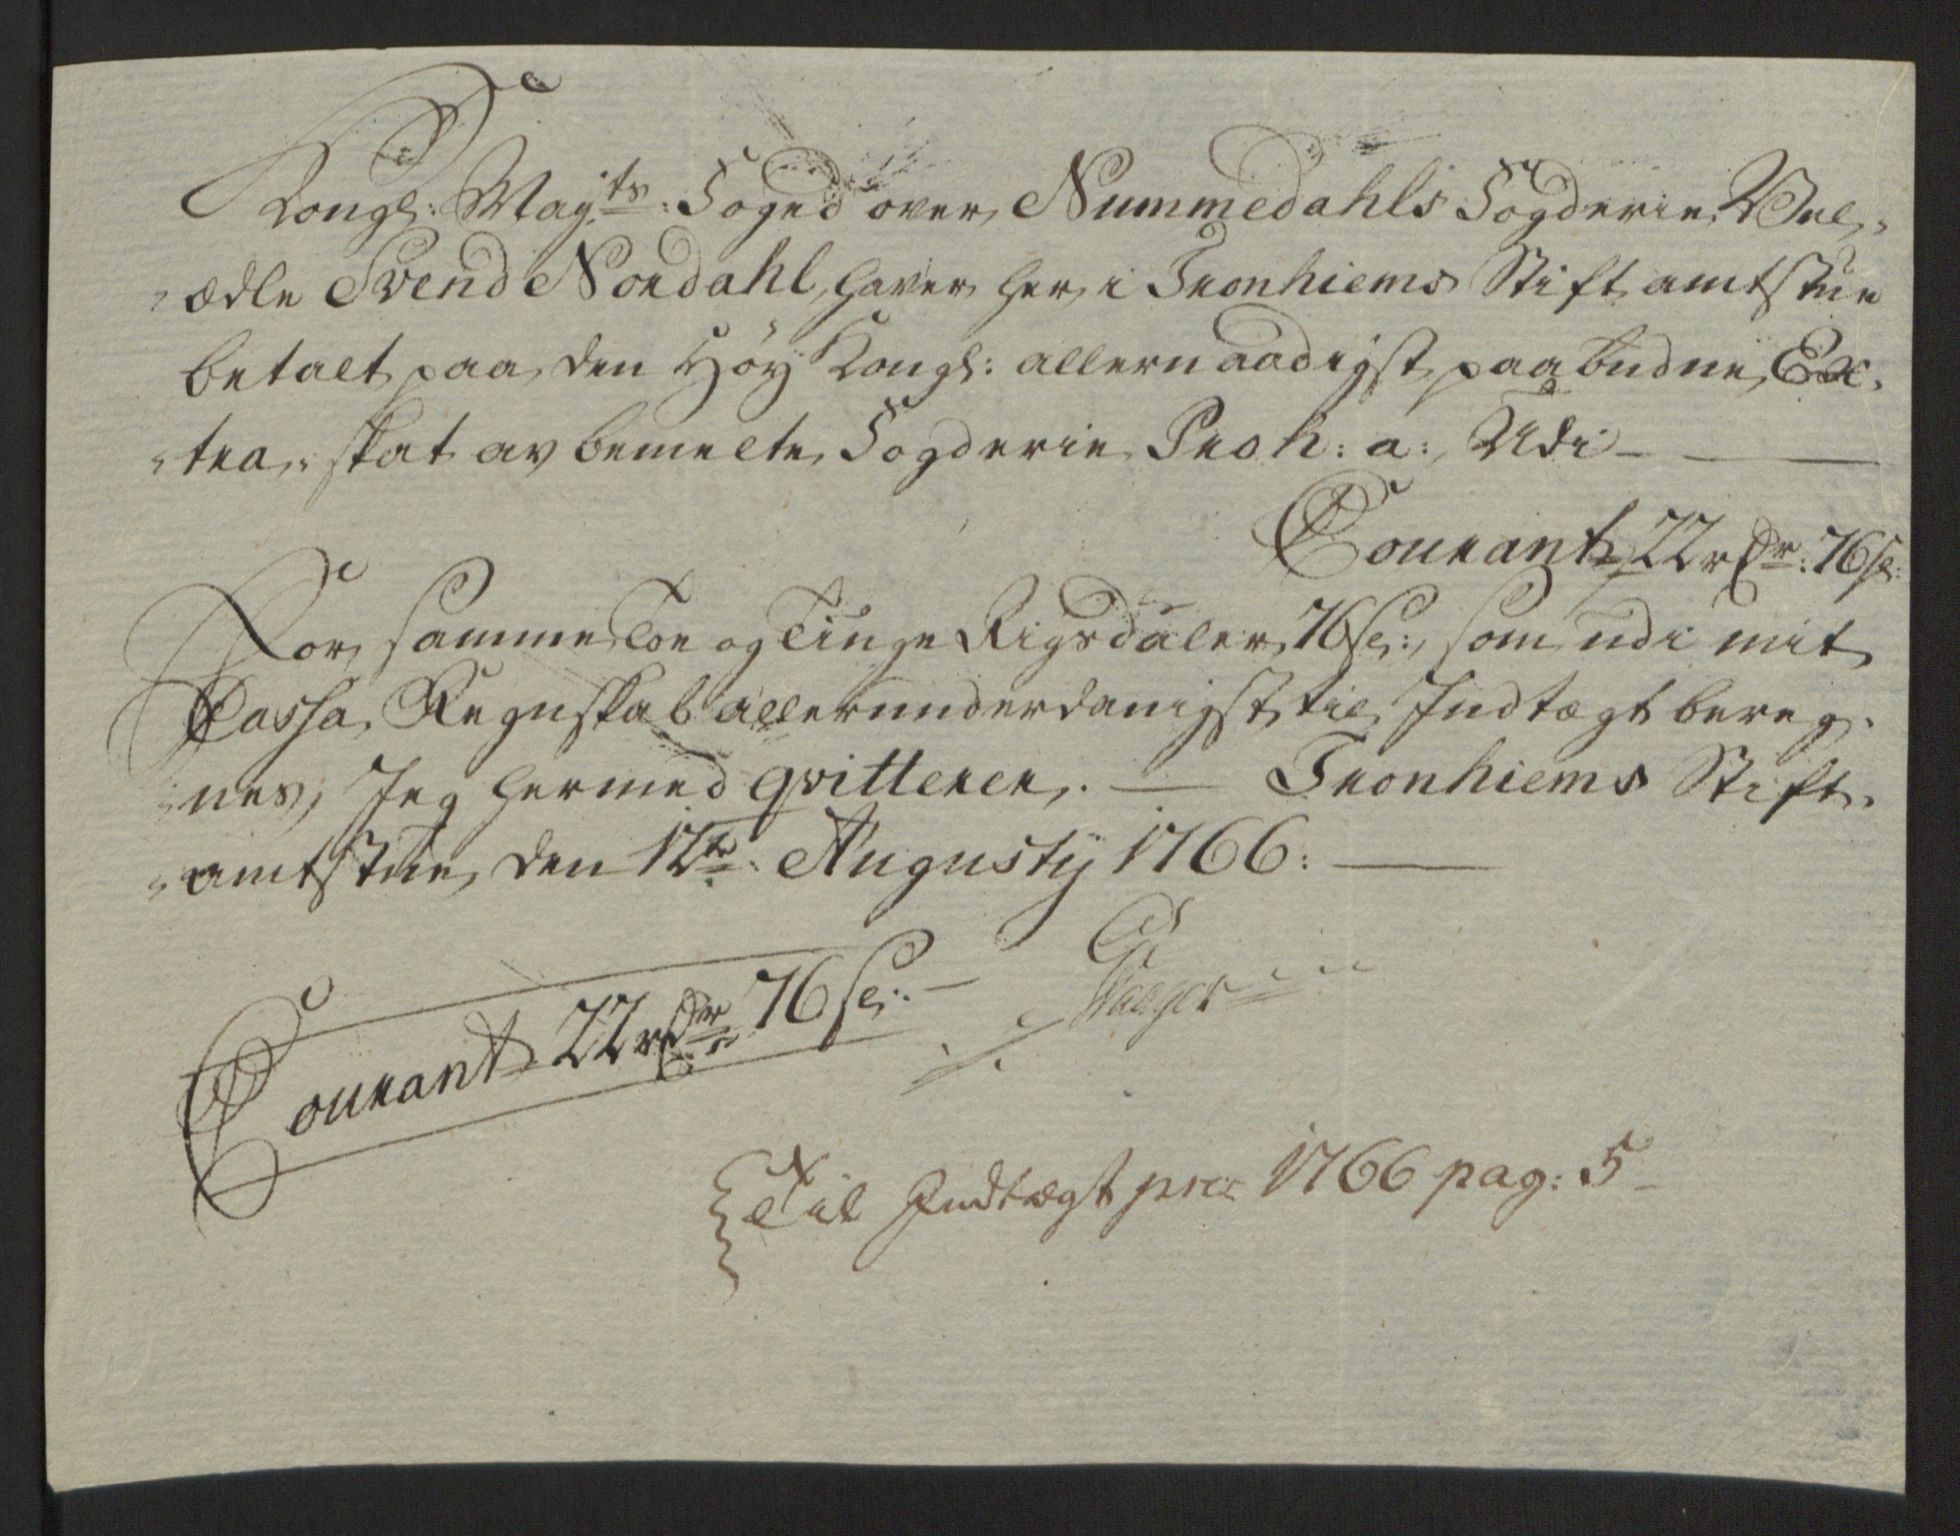 Kongl: May:ts: Foged over Nummedahls Fogderie, Vel,,
,,ædle Svend Nordahl, haver her i Tronhiems Stift amtstue
betalt paa den Høy Kongl: allernaadigst paabudne, Ex,,
,,tra,, skat av bemelte Fogderie Pro h: a: Udi —
Courant 22 rdr: 76 sl:
For samme Toe og Tiuge Rigsdaler 76 sl:, som udi mit
Cassa Regnskab allerunderdanigst til Indtægt bereg,,
,,nes, Jeg hermed qvitterer. — Tronhiems Stift,,
,,amtstue, den 12te: Augusty 1766: —
Courant 22 rdr 76 sl: —
Til Indtægt pro 1766 pag: 5 —